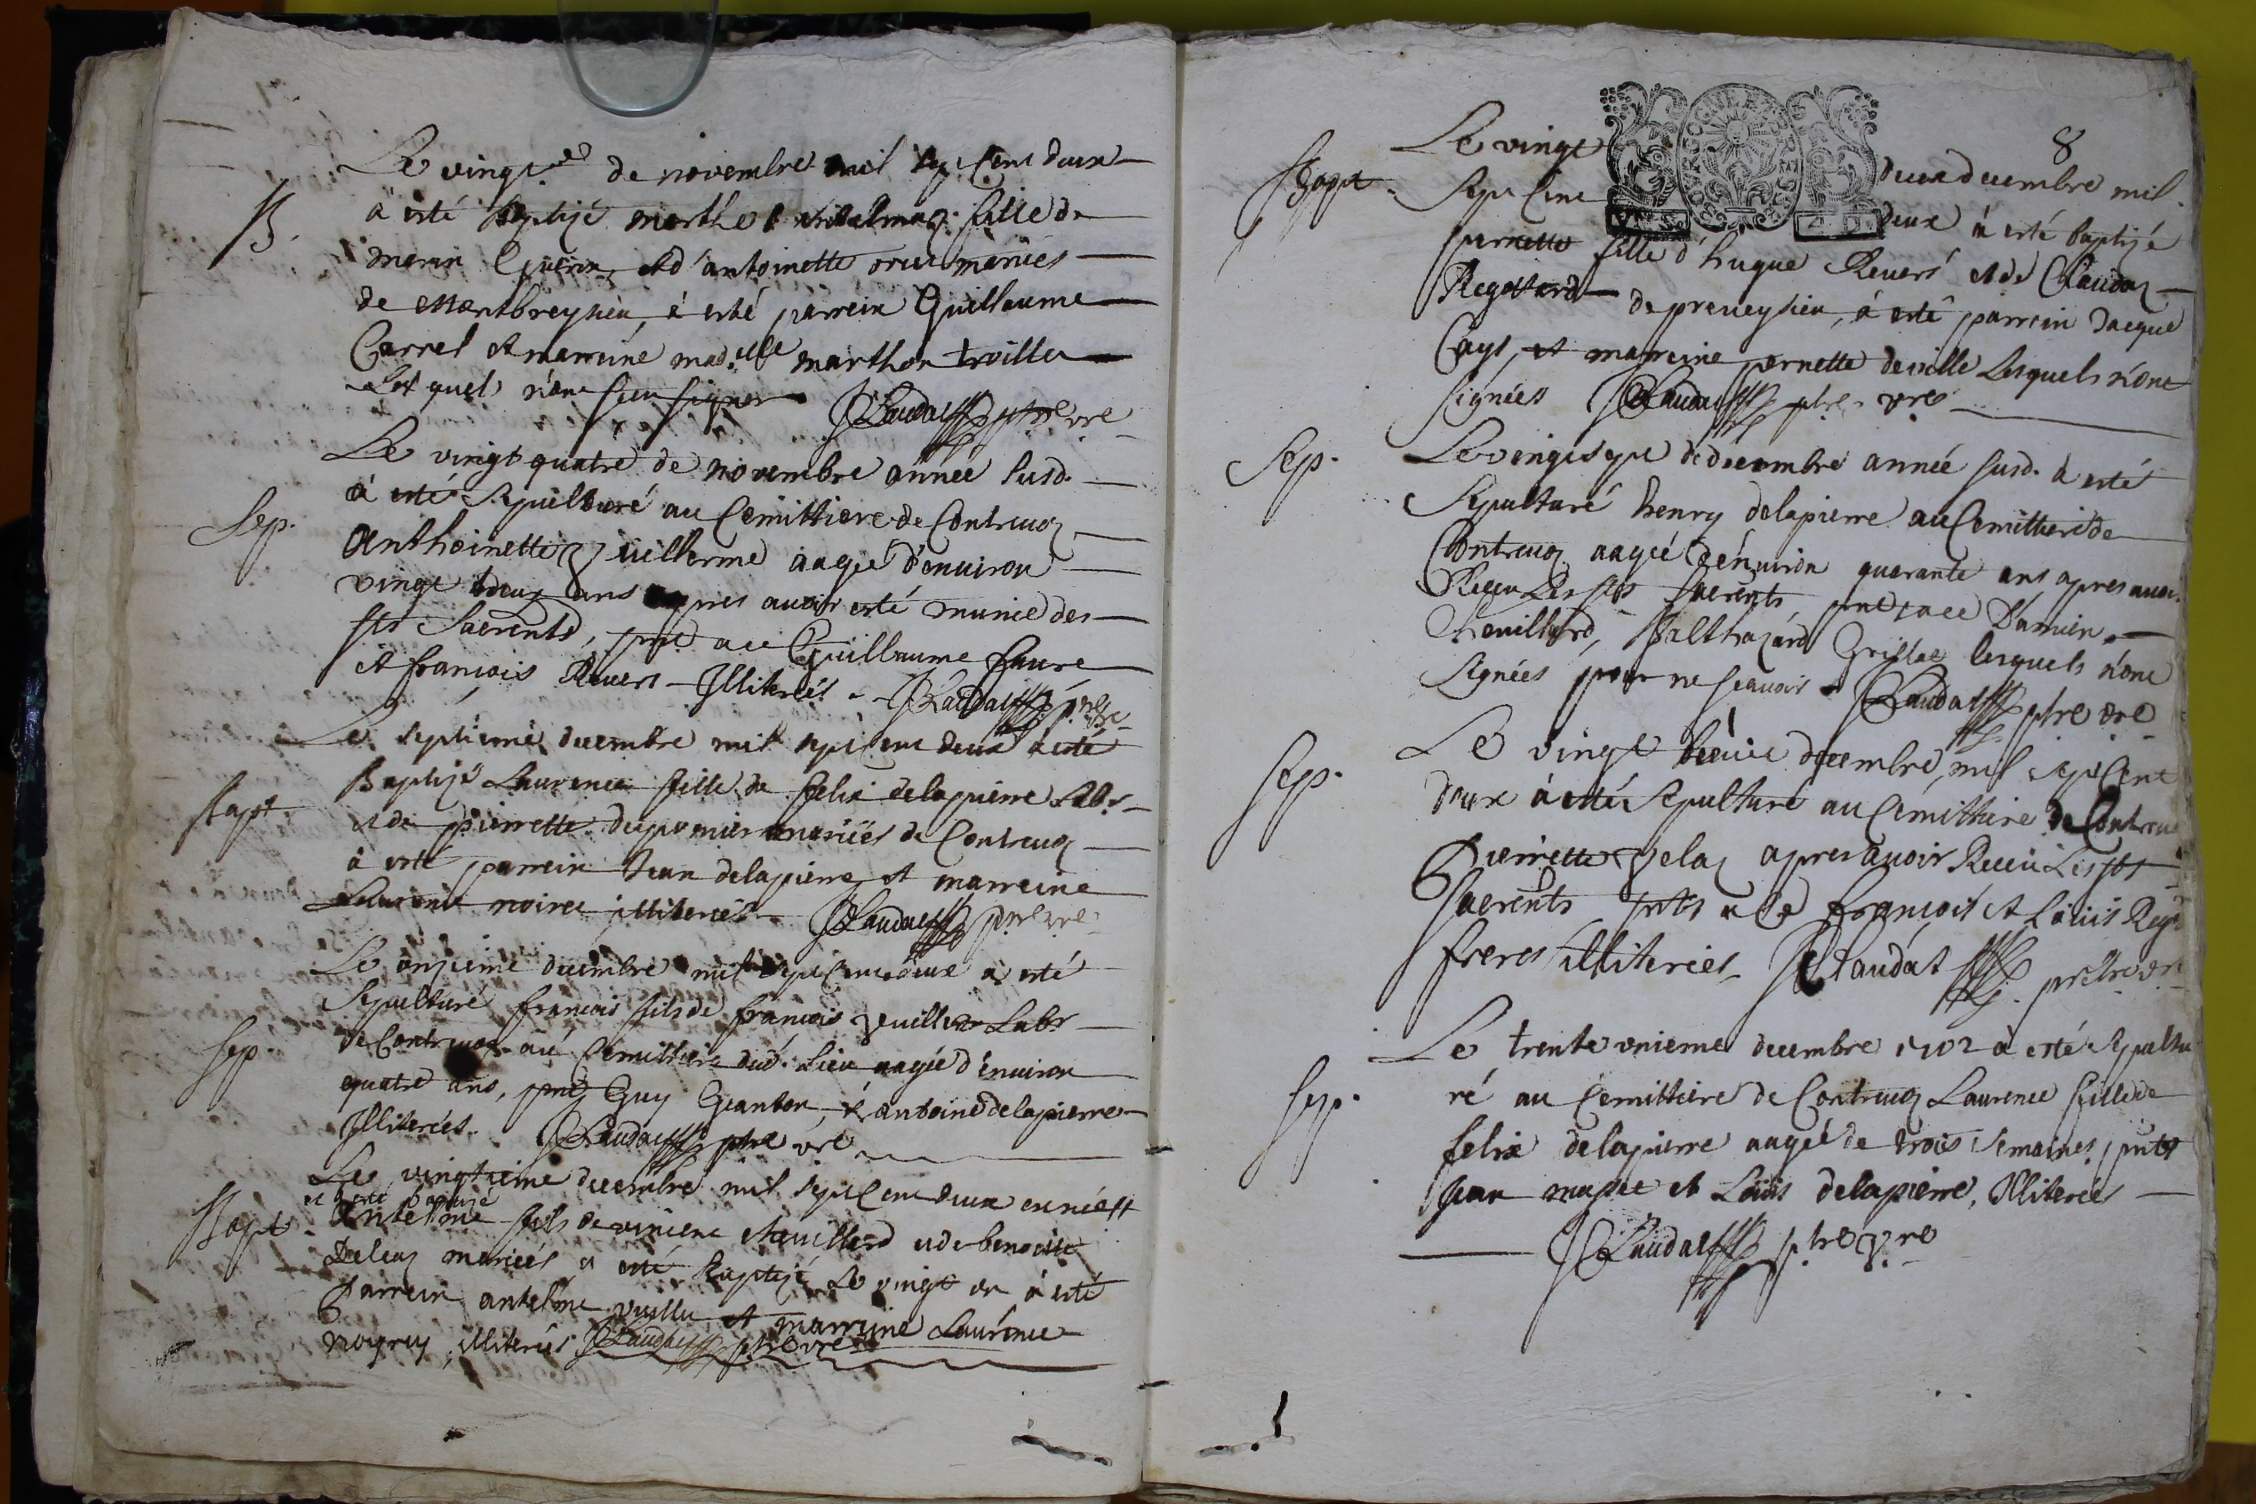 Le vingt.e de novembre mil sept Cent deux
B.
à esté baptizé marthe fille de
Guerin, et d'antoinette mariés
de Montbreysieu, à esté parrein Guillaume
Carrel et marreine mad.elle marthon trollier
Lesquels n'ont sceu signer JClaudat ptre vre
Le vingt quatre de novembre année susd.
Sep.
à esté sepulturé au Cemittiere de Contrevoz
Anthoinette Juillerme aagée d'environ
vingt deux ans apres avoir esté munie des
sts Sacrents, pnt ace Guillaume faure
et francois Revers Illiterés JClaudat ptre vre
Le septieme decembre mil sept cent deux a esté
Bapt.
Baptizé Laurence fille de felix delapierre Labr
et de pierrette dupremier mariés de Contrevoz
à esté parrein Jean delapierre et marreine
Laurence illiterés JClaudat ptre vre
Le onzieme decembre mil sept cent deux à esté
Sepulturé francois fils de francois Juiller Labr
Sep.
de Contrevoz au Cemittiere dud. Lieu aagée d'environ
quatre ans, pnt Guy Ganton, & antoine delapierre
Illiterés. JClaudat ptre vre
Le vingtieme decembre mil sept cent deux est né et
et à esté baptizé
Bapt.
Antelme fils de vincent chevillard et de benoiste
Deleaz mariés, à esté baptizé Le vingt un à esté
Parrein antelme vuillu et marreine Laurence
illiterés JClaudat ptre vre
8
Le vingt deux decembre mil
Bapt.
Sept Cent deux à esté baptizé
pernette fille d'hugue Revers et de Claudaz
Regottard de preveysieu, à esté parrein Jacque
Cays, et marreine pernette deville Lesquels n'ont
signées JClaudat ptre vre
Sep.
Le vingt sept de decembre année susd. à esté
Sepulturé henry delapierre au Cemittiere de
Contrevoz aagée d'environ quarante ans apres avoir
Receu Les sts Sacrents, pnt ace Damien
Chevillard, Balthazard Grillet lesquels n'ont
Signées pour ne scavoir JClaudat ptre vre
Sep.
Le vingt decembre, mil sept Cent
deux à esté sepulturé au Cemittiere de Contrevo
Pierrette Jelaz apres avoir Receu Les sts
Sacrents pnts ace francois et Louis
freres illiterées JClaudat prestre vre
Le trente unieme decembre 1702 à esté sepultu
Sep.
ré au Cemittiere de Contrevoz Laurence fille de
felix delapierre aagée de trois semaines, pnts
Jean et Louis delapierre, Illiterées
JClaudat ptre vre